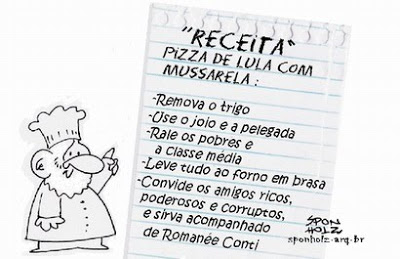 "RECEITA"
PIZZA DE LULA COM
MUSSARELA :
-Remova o trigo
-Use o joio e a pelegada
-Rale os pobres e
a classe média
-Leve tudo ao forno em brasa
-Convide os amigos ricos,
poderosos e corruptos,
e sirva acompanhado
de Romanée Conti
SPON
HOLZ
sponholz.arq.br